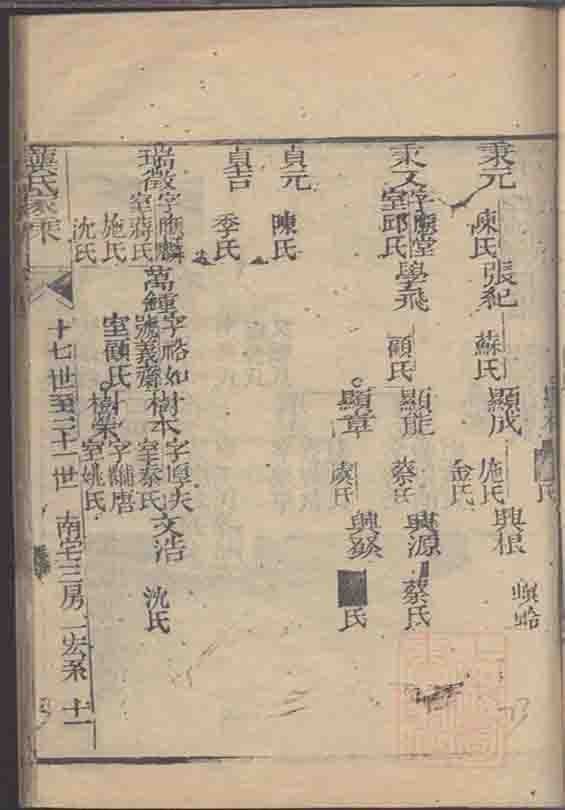 秉元 陳氏 張紀 蘇氏 顯成 施氏 興根 螟蛉
金氏
秉文 字應堂 學飛 顧氏 顯能 蔡氏 興源 蔡氏
室邱氏
顯章 歲氏 氏
貞元 陳氏
貞吉 季氏
瑞徵 字應麟 萬鍾 字裕如 樹本 字厚夫 文浩 沈氏
室蔣氏 號義齋 室秦氏
施氏 室顧氏 樹榮
沈氏 室姚氏
氏家乘 十七世至二十一世 南宅三房 一宏系 十一